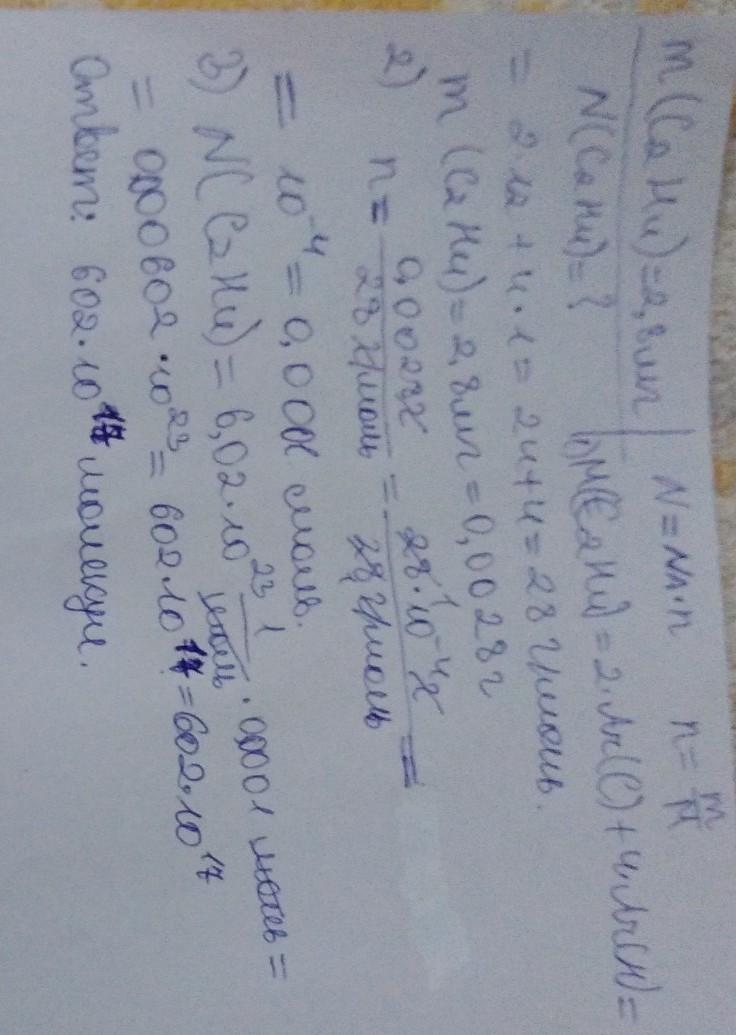 m(C₂H₄)=2,8мг | N=Nᴀ·n n=m/M
N(C₂H₄)=? | 1) M(C₂H₄)=2·Ar(C)+4·Ar(H)=
= 2·12+4·1=24+4=28 г/моль.
m(C₂H₄)=2,8мг=0,0028г
2) n= 0,0028г/28г/моль = 28·10⁻⁴г/28г/моль =
= 10⁻⁴=0,0001 моль.
3) N(C₂H₄)=6,02·10²³ 1/моль · 0,0001 моль=
= 0,000602·10²³=602·10¹⁷=602·10¹⁷
Ответ: 602·10¹⁷ молекул.